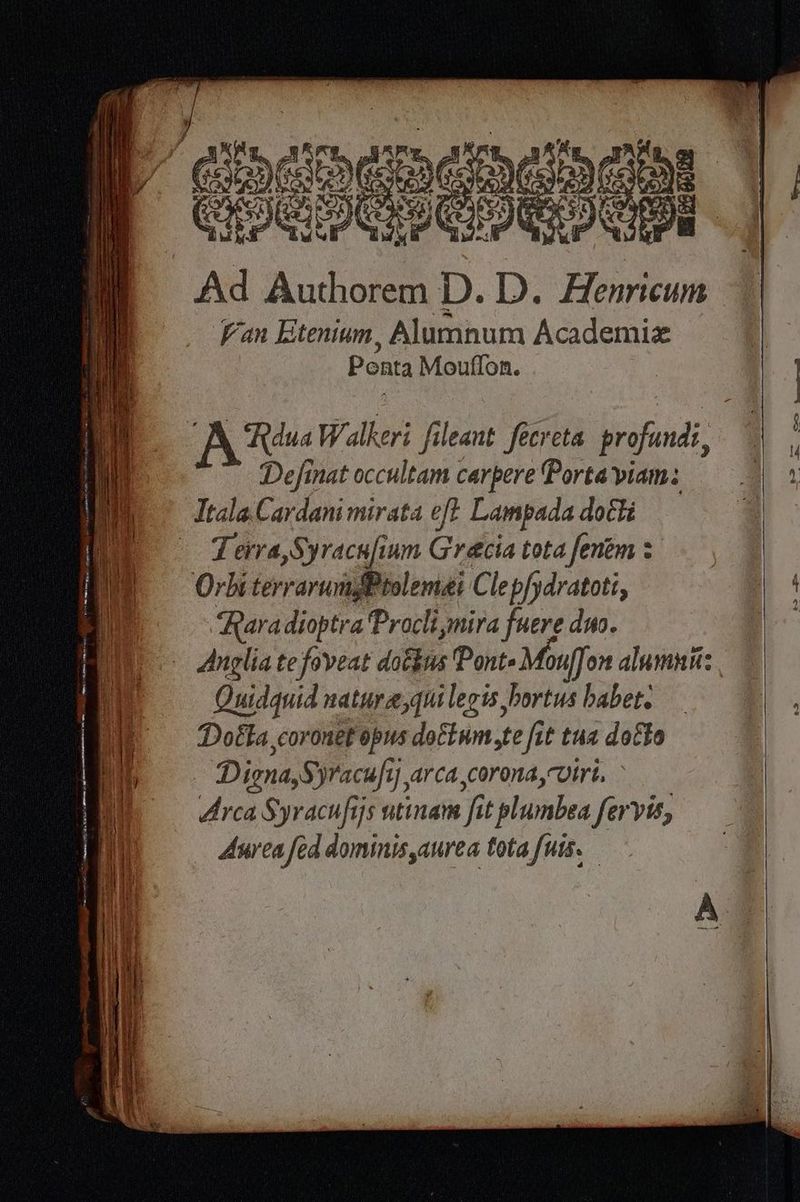 Ad Authorem D. D. Henricum
Van Etenium, Alumnum Academiæ
Ponta Mouſſon.
ARdua Walkeri ſileant ſecreta profundi,
Deſinat occultam carpere Porta viam:
Itala Cardani mirata eſt Lampada docti
Terra, Syracuſium Græcia tota ſenem:
Orbi terrarum, Ptolemæi Clepſydra toti,
Rara dioptra Procli, mira fuere duo.
Anglia te foveat doctus Pont-Mouſſon alumnū:
Quidquid naturæ, qui legis, hortus habet.
Docta, coronet opus doctum, te ſit tua docto
Digna, Syracuſij, arca, corona, viri.
Arca Syracuſijs utinam ſit plumbea ſervis,
Aurea ſed dominis, aurea tota ſuis.
A